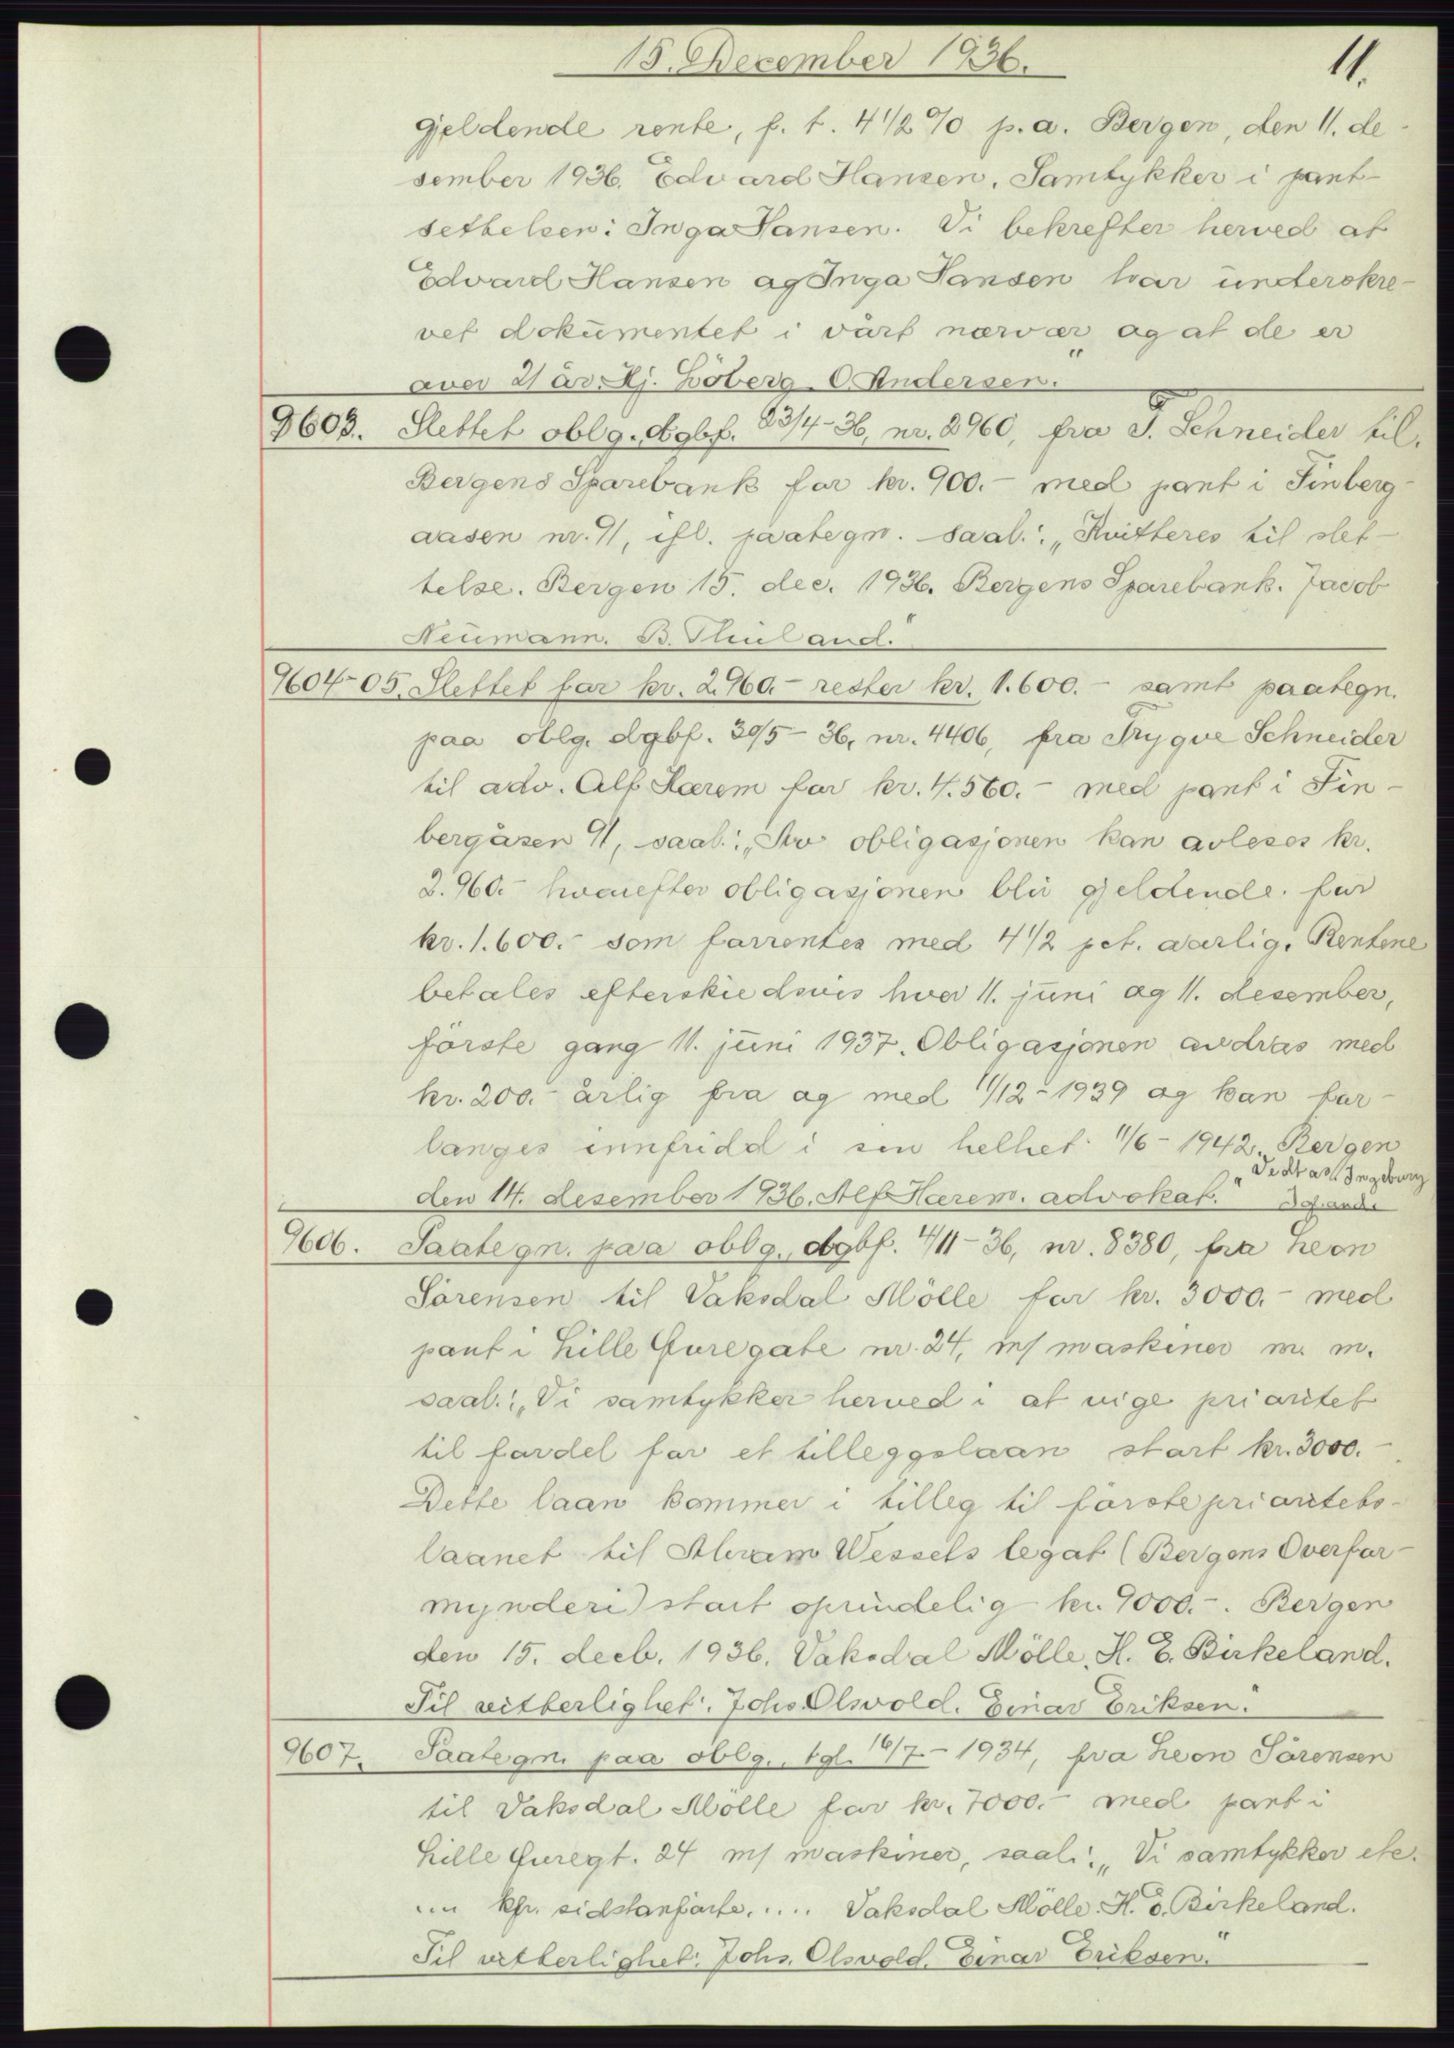 15. December 1936.
11.
gjeldende rente, f. t. 4 1/2 % p.a. Bergen, den 11. de-
sember 1936. Edvard Hansen. Samtykker i pant-
settelsen: Inga Hansen. Vi bekrefter herved at
Edvard Hansen og Inga Hansen har underskre-
vet dokumentet i vårt nærvær og at de er
over 21 år. Hj. Löberg. O. Andersen."
9603. Slettet oblg., dgbf. 23/4-36, nr. 2960, fra T. Schneider til
Bergens Sparebank for kr. 900.- med pant i Finberg-
aasen nr. 91, ifl. paategn. saal.: „Kvitteres til slet-
telse. Bergen 15. dec. 1936. Bergens Sparebank. Jacob
Neumann. B. Thuland."
9604-05. Slettet for kr. 2.960.- rester kr. 1.600.- samt paategn.
paa oblg. dgbf. 30/5-36, nr. 4406, fra Trygve Schneider
til adv. Alf Hærem for kr. 4.560.- med pant i Fin-
bergåsen 91, saal.: „Av obligasjonen kan avleses kr.
2.960.- hvorefter obligasjonen blir gjeldende for
kr. 1.600.- som forrentes med 4 1/2 pct. aarlig. Rentene
betales efterskuddsvis hver 11. juni og 11. desember,
förste gang 11. juni 1937. Obligasjonen avdras med
kr. 200.- årlig fra og med 11/12-1939 og kan for-
langes innfridd i sin helhet 11/6-1942. Bergen
den 14. desember 1936. Alf Hærem. advokat." „Vedtas Ingeborg
9606. Paategn. paa oblg., dgbf. 4/11-36, nr. 8380, fra Leon
Sörensen til Vaksdal Mölle for kr. 3000.- med
pant i Lille Öuregate nr. 24, m/ maskiner m. m.
saal.: „Vi samtykker herved i at vige prioritet
til fordel for et tilleggslaan stort kr. 3000.-
Dette laan kommer i tilleg til förste prioritets-
laanet til Abram Wessels legat (Bergens Overfor-
mynderi) stort oprindelig kr. 9000.-. Bergen
den 15. decb. 1936. Vaksdal Mölle. H. E. Birkeland.
Til vitterlighet: Johs. Olsvold. Einar Eriksen."
9607. Paategn. paa oblg., tgl. 16/7-1934, fra Leon Sörensen
til Vaksdal Mölle for kr. 7000.- med pant i
Lille Öuregt. 24 m/ maskiner, saal.: „Vi samtykker etc.
.... kfr. sidstanförte. .... Vaksdal Mölle. H. E. Birkeland.
Til vitterlighet: Johs. Olsvold. Einar Eriksen."